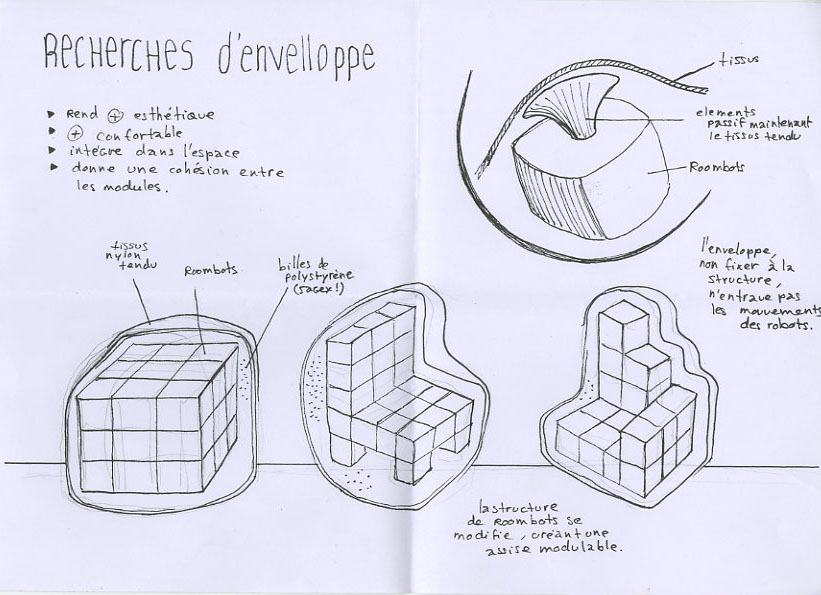 Recherches d'envelloppe
▸ Rend ⊕ esthétique
▸ ⊕ confortable
▸ intègre dans l'espace
▸ donne une cohésion entre
les modules.
tissus
elements
passif maintenant
le tissus tendu
Roombots
l'enveloppe,
non fixer à la
structure,
n'entrave pas
les mouvements
des robots.
tissus
nylon
tendu
Roombots
billes de
polystyrène
(sagex!)
la structure
de Roombots se
modifie, créant une
assise modulable.